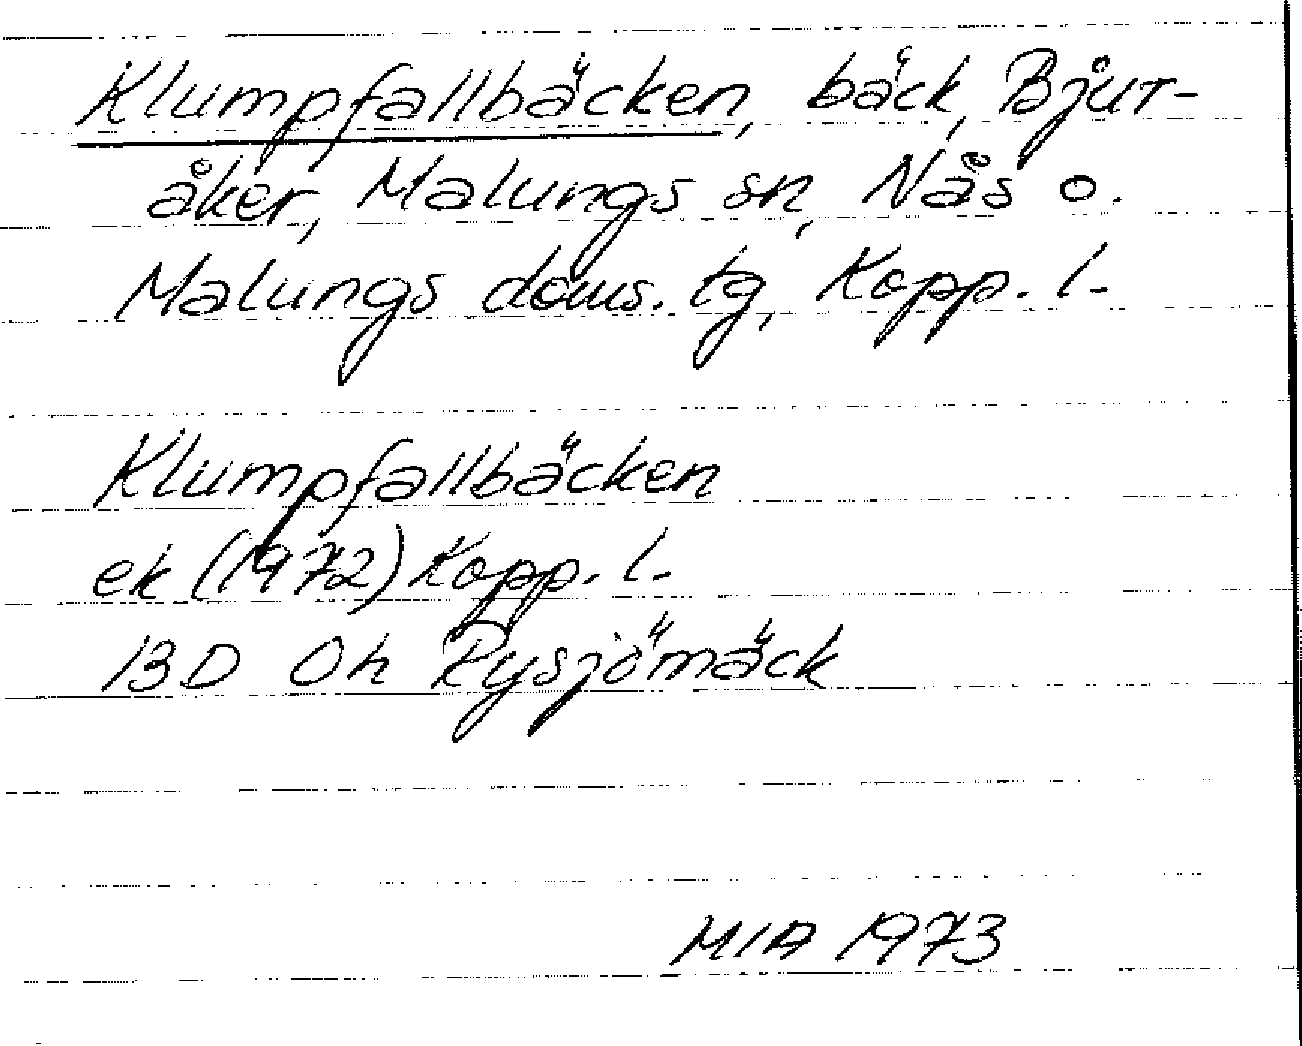 Klumpfallbäcken, bäck, Bjur-
åker, Malungs sn, Nås o.
Malungs doms. tg, Kopp. l.
Klumpfallbäcken
ek (1972) Kopp. l.
13D Oh Rysjömäck
MIA 1973